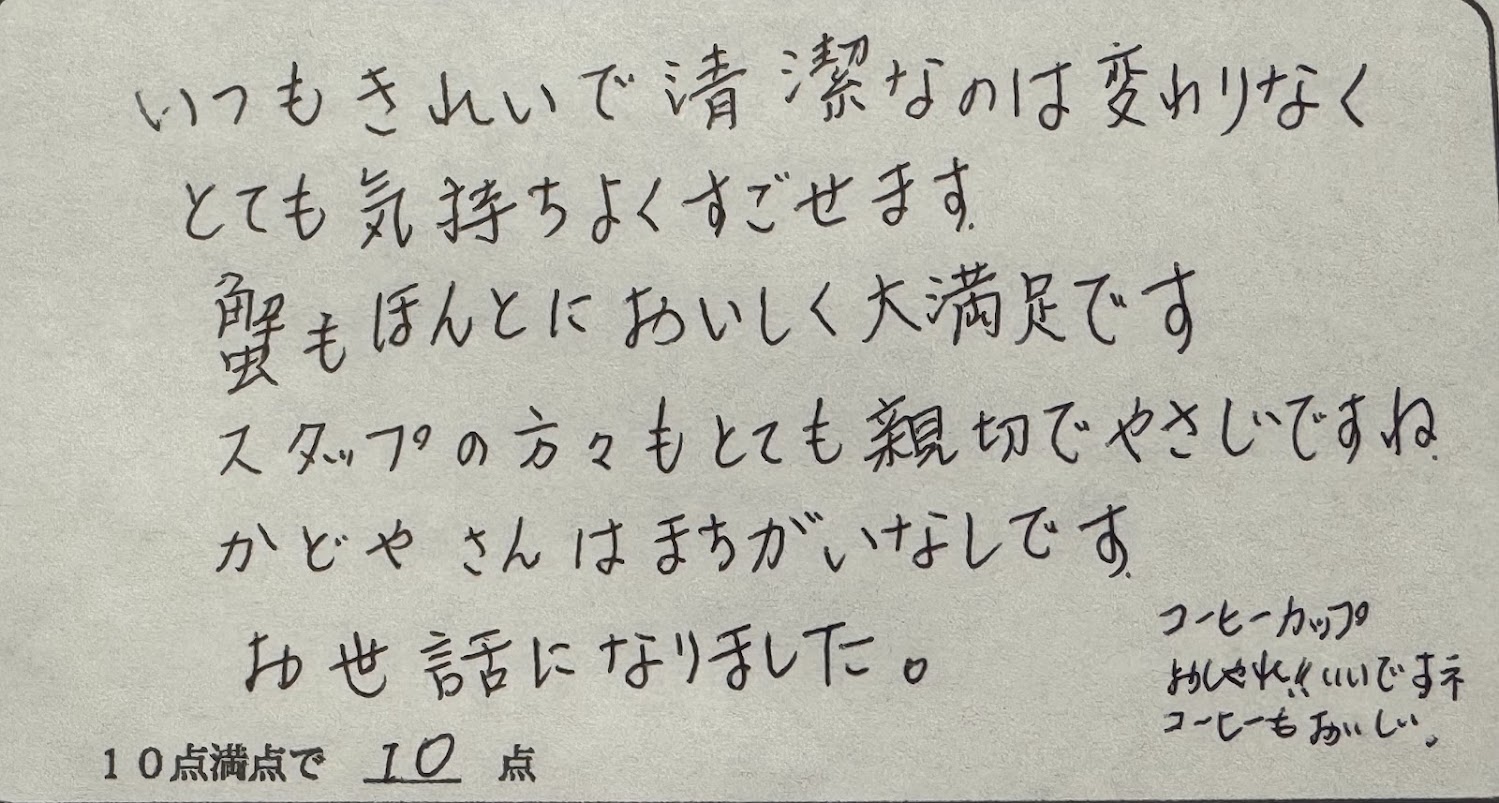 いつもきれいで清潔なのは変わりなく
とても気持ちよくすごせます.
蟹もほんとにおいしく大満足です
スタップの方々もとても親切でやさしいですね.
かどやさんはまちがいなしです.
お世話になりました。
コーヒーカップ
おしゃれ!!いいですネ
コーヒーもおいしい。
10点満点で 10 点